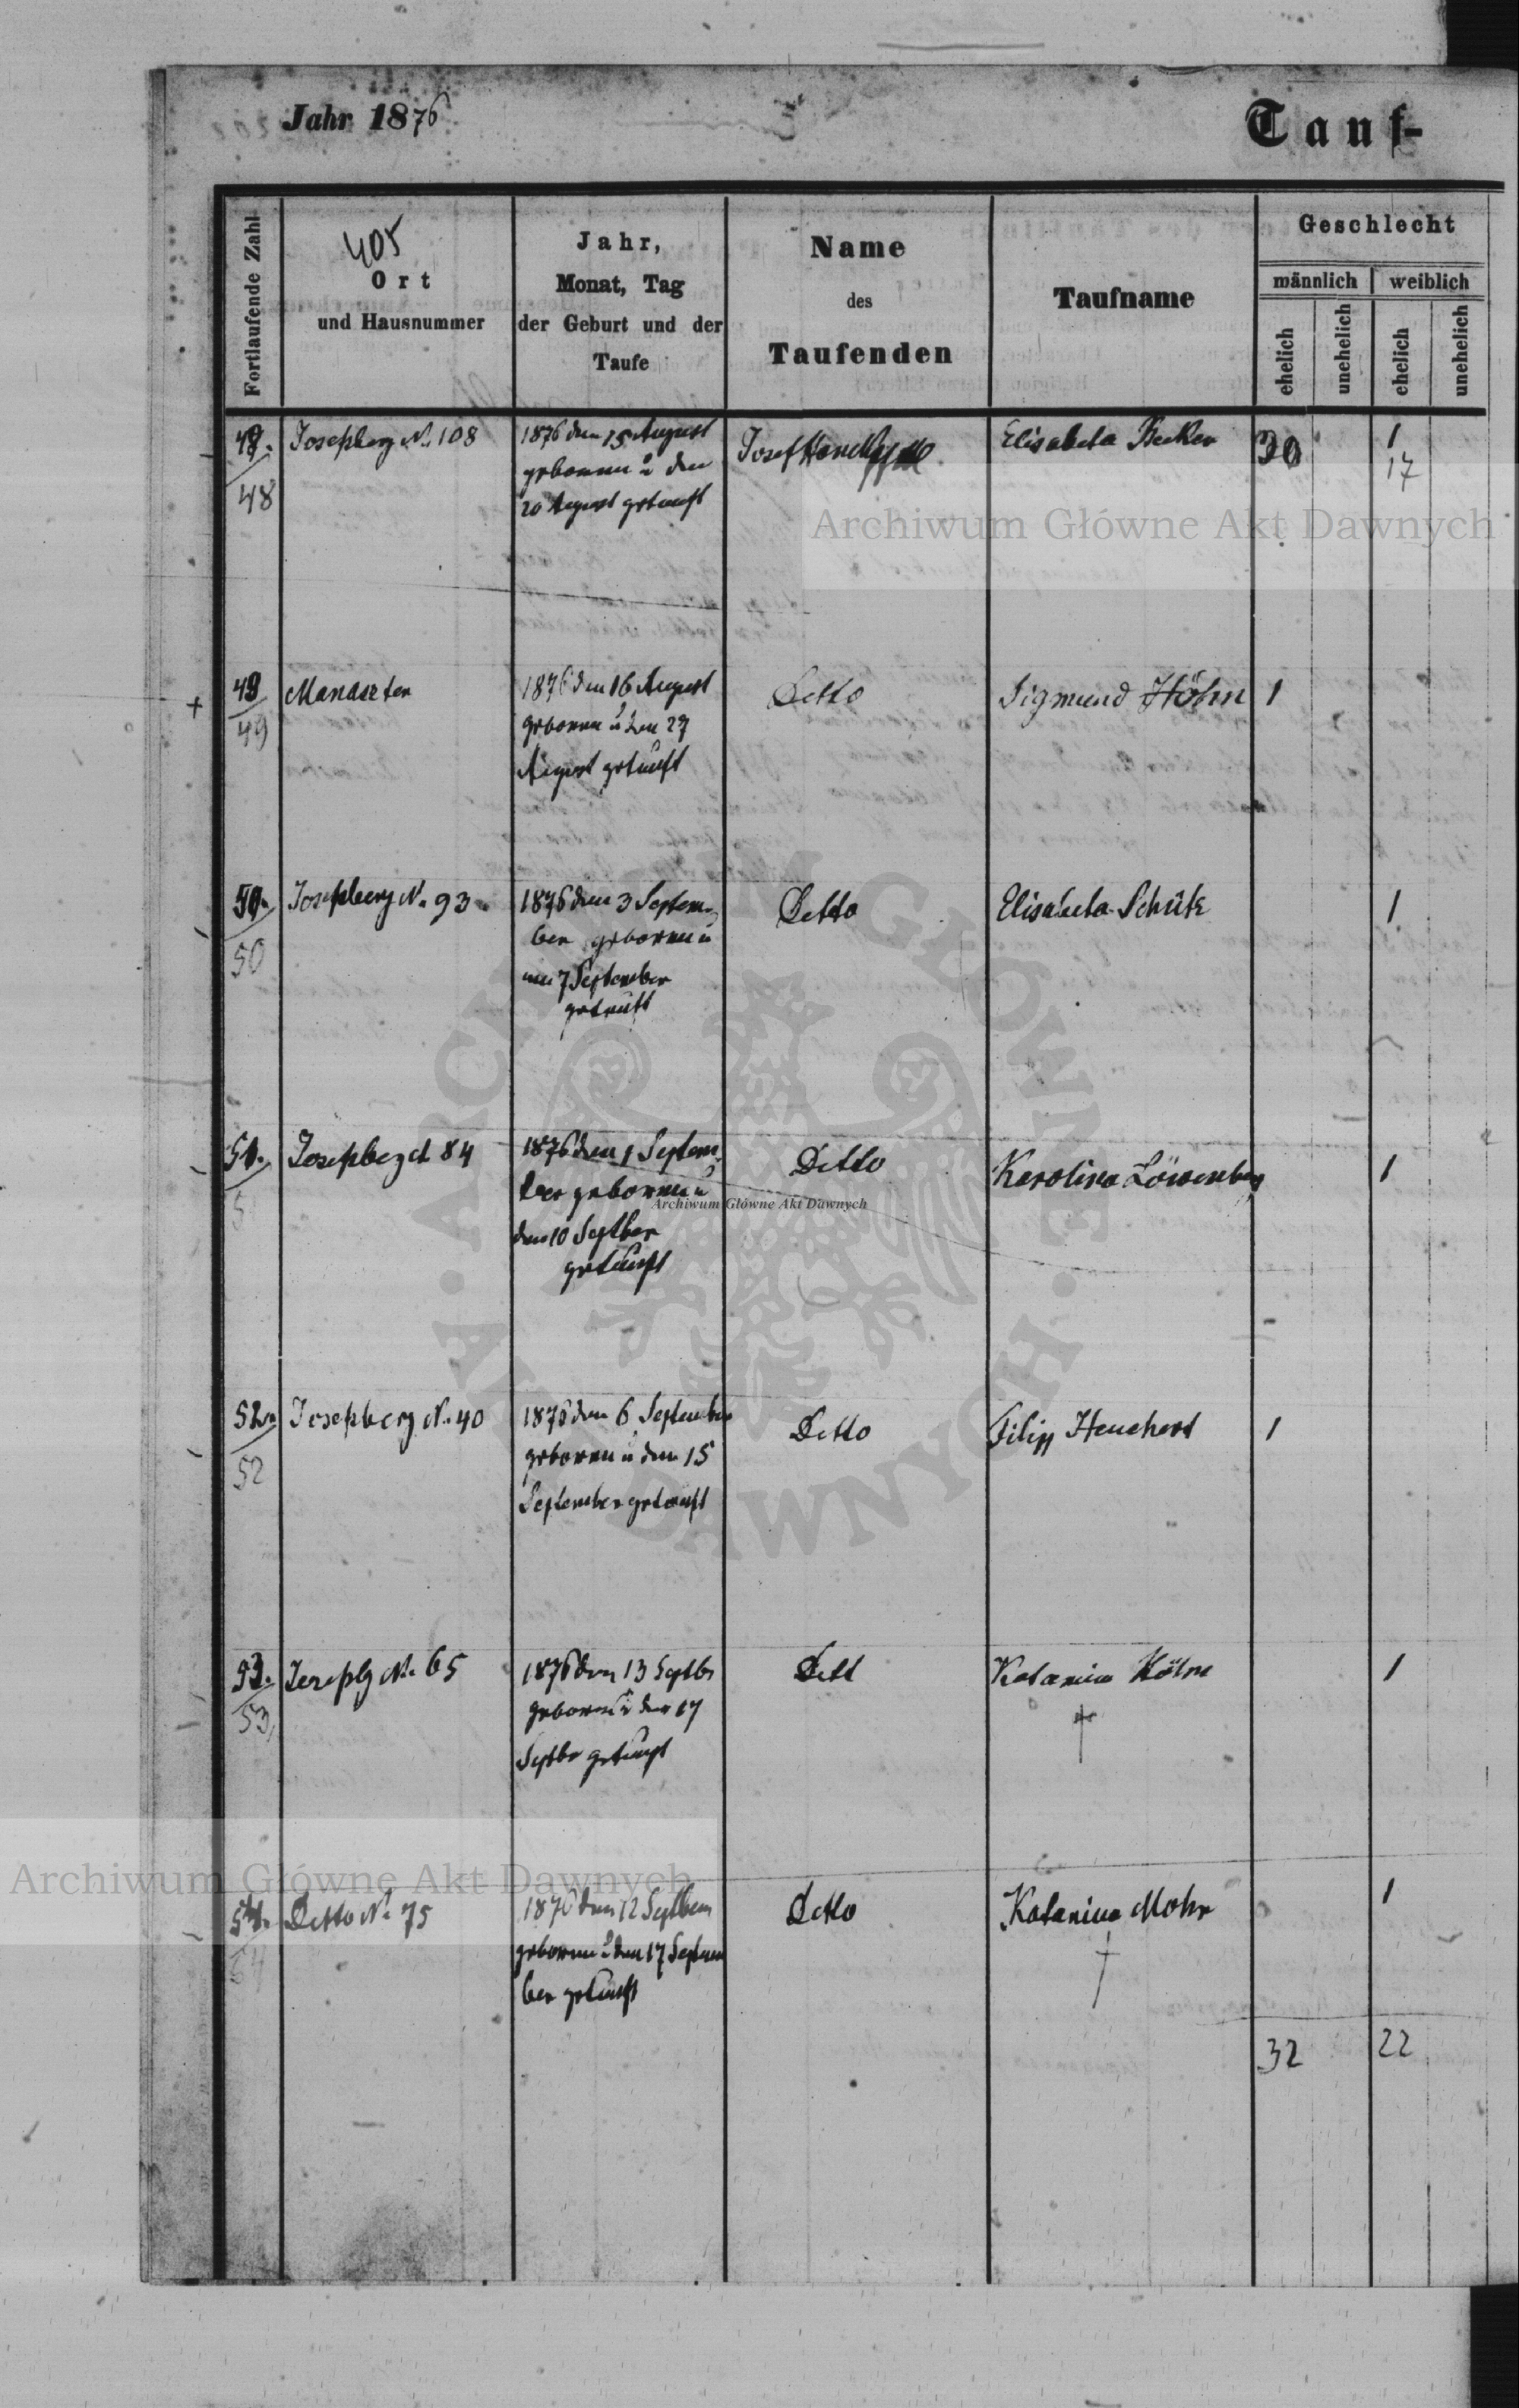 Jahr 1876
Tauf-
Fortlaufende Zahl
405
Ort
und Hausnummer
Jahr,
Monat, Tag
der Geburt und der
Taufe
Name
des
Taufenden
Taufname
Geschlecht
männlich
weiblich
ehelich
unehelich
ehelich
unehelich
48.
48
Josephberg N. 108
1876 den 15 August
geboren u den
20 August getauft
Josef
Elisabeta Becker
30
1
17
Archiwum Główne Akt Dawnych
49
49
1876 den 16 August
geboren u den 27
August getauft
Detto
Sigmund Höhn
1
50.
50
Josephberg N. 93
1876 den 3 Septem-
ber geboren u
7 September
getauft
Detto
Elisabeta Schütz
1
51.
Josephberg 84
1876 den 1 Septem-
ber geboren u
den 10 Septber
getauft
Ditto
Karolina Löwenberg
1
Archiwum Główne Akt Dawnych
52
52
Josephberg N. 40
1876 den 6 September
geboren u den 15
September getauft
Detto
Filipp Heuchert
1
53.
53
Josephbg N. 65
1876 den 13 Septbr
geboren u den 17
Septbr getauft
Dett
Katarina
1
Archiwum Główne Akt Dawnych
54.
54
Detto N. 75
1876 den 12 Septbem
geboren u den 17 Septem
ber getauft
Detto
Katarina Mohr
1
32
22
ARCHIWUM GŁÓWNE
AKT DAWNYCH